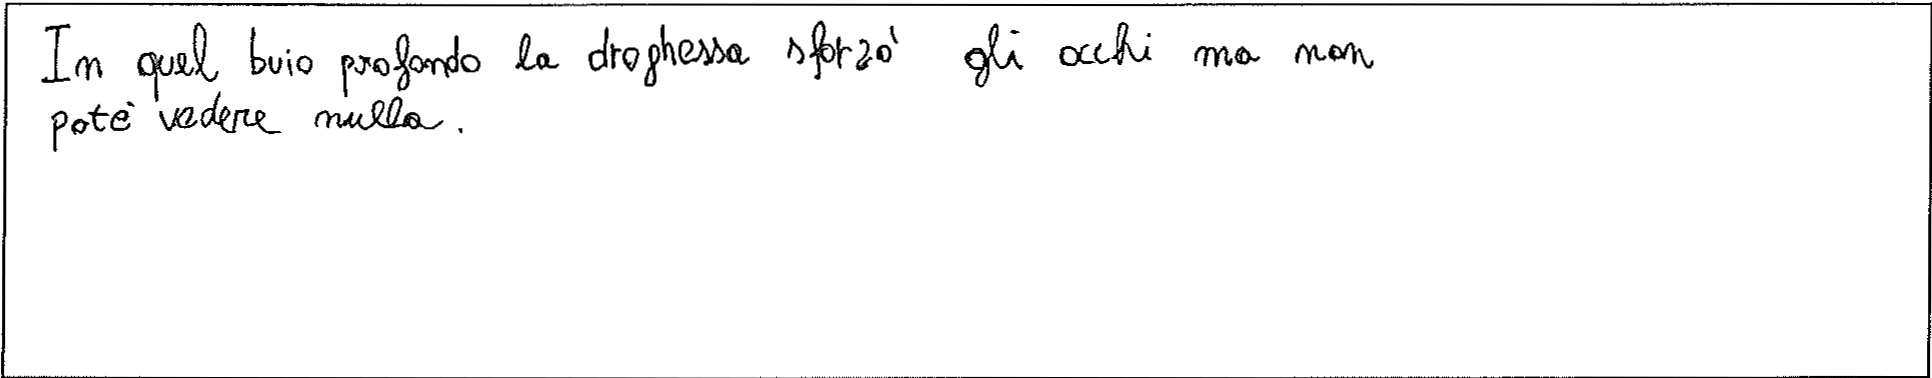 In quel buio profondo la droghessa sforzò gli occhi ma non
potè vedere nulla.